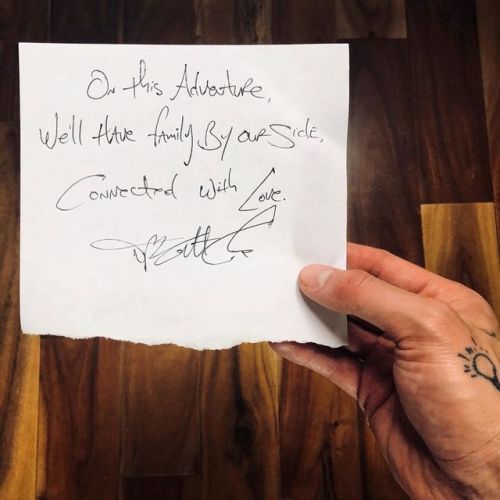 On this Adventure,
We'll Have family By our Side,
Connected with Love.